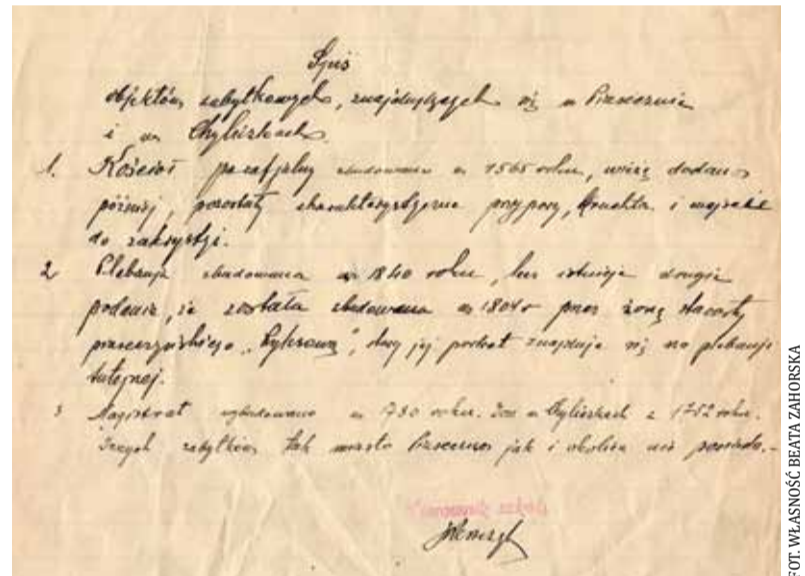 Spis
objektów zabytkowych, znajdujących się w Piasecznie
i w Chyliczkach
1. Kościoł parafjalny zbudowano w 1565 roku, wieżę dodano
później, pozostały charakterystyczne przypory, kruchta i wejście
do zakrystji.
2 Plebanja zbudowana w 1840 roku, lecz istnieje drugie
podanie, że została zbudowana w 1804 r przez żonę starosty
piaseczyńskiego „Ryksową", jej portret znajduje się na plebanji
tutejszej.
3 Magistrat wybudowano w 1730 roku. w Chyliczkach z 1752 roku.
Innych zabytków tak miasto Piaseczno jak i okolica nie posiada.-
FOT. WŁASNOŚĆ BEATA ZAHORSKA